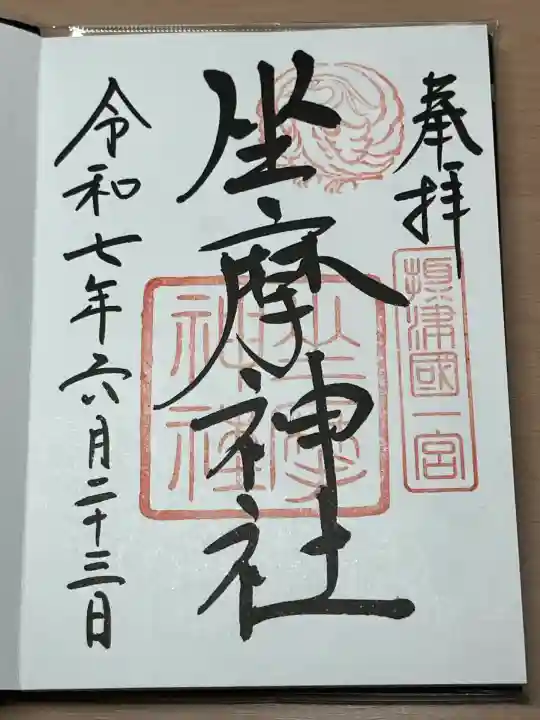 奉拝
攝津國一宮
坐摩神社
坐摩
神社
令和七年六月二十三日